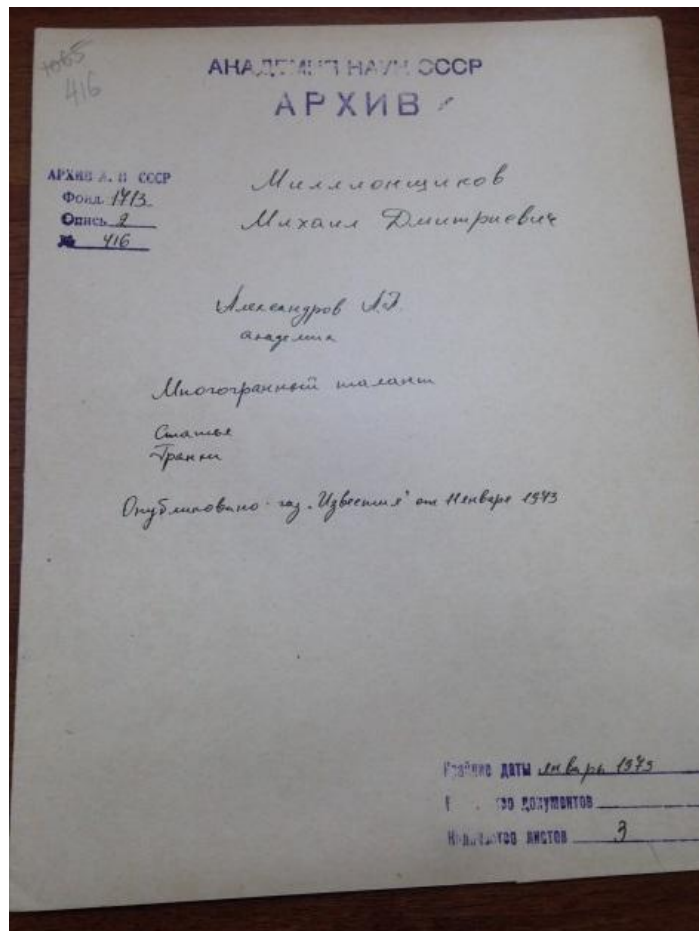 416
АКАДЕМИЯ НАУК СССР
АРХИВ
АРХИВ А. Н СССР
Фонд 1713
Опись 2
№ 416
Миллионщиков
Михаил Дмитриевич
Александров А.П.
академик
Многогранный талант
Статья
Гранки
Опубликовано - газ. "Известия" от 11 января 1973
Крайние даты январь 1973
Количество документов
Количество листов 3